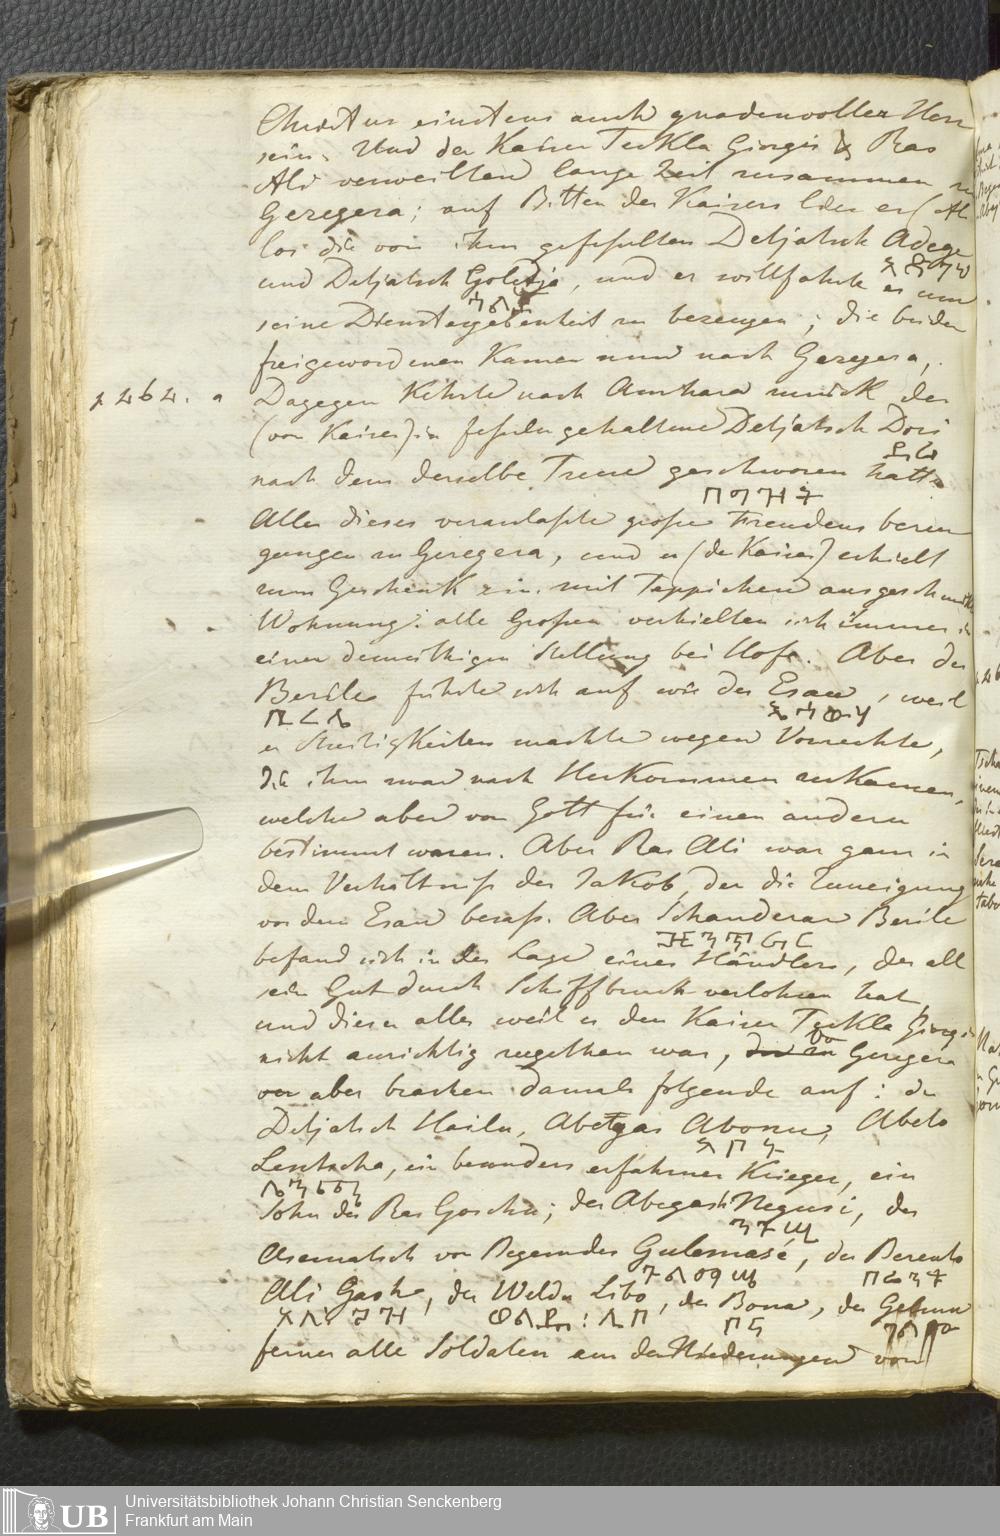 Christus einstens auch gnadenvoller Herr
sein. Und der Kaiser Tekla Giorgis & Ras
Ali verweilten lange Zeit zusammen zu
Geregera; auf Bitten des Kaisers liess er (Ali
los die von ihm gefesselten Detjatsch Adege
und Detjatsch Goledja, und er willfahrte es um
seine Dienstergebenheit zu bezeugen; die beiden
freigewordenen Kamen nun nach Geregera,
p. 264. a Dagegen Kehrte nach Amhara zurück der
(vom Kaiser) in Fesseln gehaltene Detjatsch Dori
nach dem derselbe Treue geschworen hatte
በጎዝቶ
Alles dieses veranlasste grosse Freudens bezeu
gungen zu Geregera, und er (der Kaiser) erhielt
zum Geschenk ein mit Teppichen ausgeschmückte
Wohnung. alle Grossen verhielten sich immer in
einer demüthigen Stellung bei Hofe. Aber der
Berile führte sich auf wie der Esau, weil
በርሌ
er Streitigkeiten machte wegen Vorrechte,
die ihm zwar nach Herkommen zukamen,
welche aber von Gott für einen andern
bestimmt waren. Aber Ras Ali war ganz in
dem Verhältniss des Jakob, der die Zuneigung
vor dem Esau besass. Aber Schanderar Berile
befand sich in der Lage eines Händlers, der all
sein Gut durch Schiffbruch verlohren hat,
und dieses alles weil er dem Kaiser Tekla Giorgis
nicht aufrichtig zugethan war, Von Geregera
aber brachen damals folgende auf: der
Detjatsch Hailu, Abetgas Abonu, Abeto
Lentscha, ein besonders erfahrner Krieger, ein
Sohn des Ras Goschu; der Abegasch Negusi, der
Asematsch von Begemder Gulemasé, der Berento
ጉልማሤ በረንቶ
Ali Gashe, der Welda Libo, der Bona, der Gelmu
ወልደ፡ ሊቦ ቦና
ferner alle Soldaten aus den Niederungen von
Universitätsbibliothek Johann Christian Senckenberg
Frankfurt am Main
UB